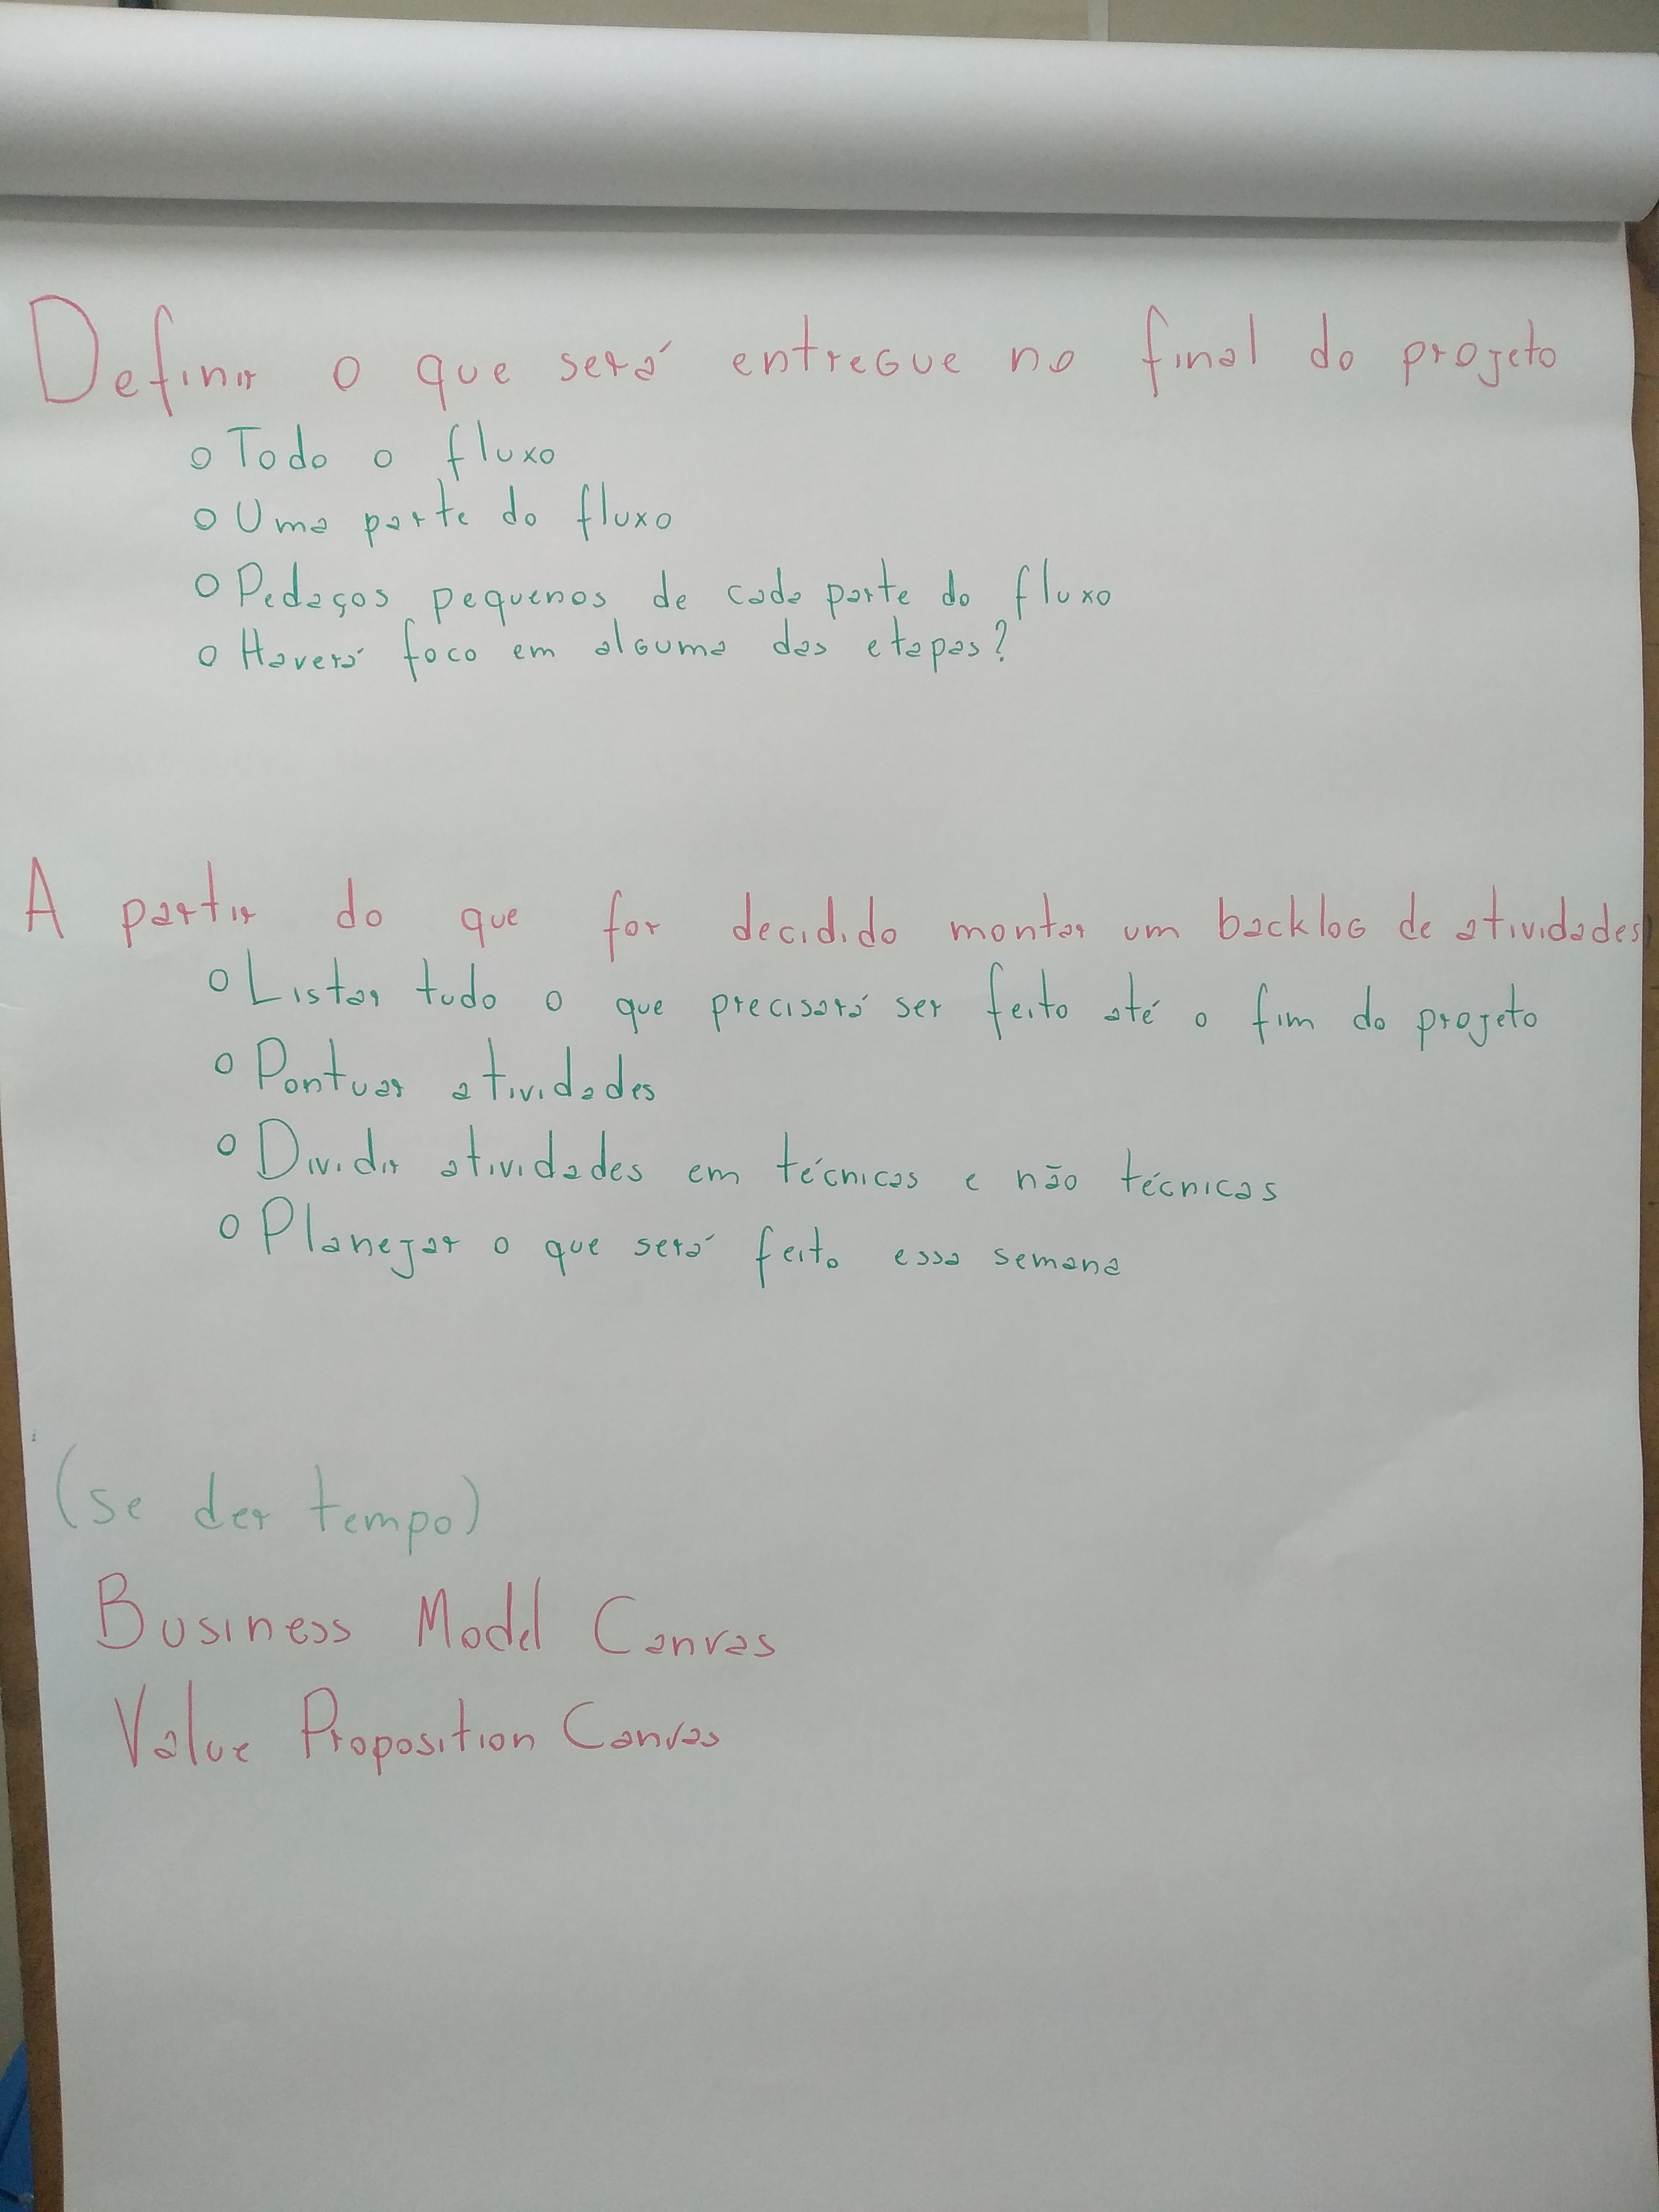 Definir o que será entregue no final do projeto
o Todo o fluxo
o Uma parte do fluxo
o Pedaços pequenos de cada parte do fluxo
o Haverá foco em alguma das etapas?
A partir do que for decidido montar um backlog de atividades
o Listar tudo o que precisará ser feito até o fim do projeto
o Pontuar atividades
o Dividir atividades em técnicas e não técnicas
o Planejar o que será feito essa semana
(se der tempo)
Business Model Canvas
Value Proposition Canvas